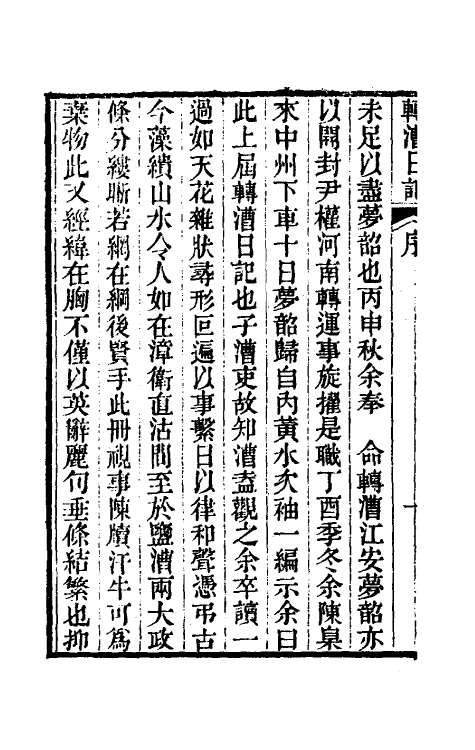 轉漕日記 序 一
未足以盡夢韶也丙申秋余奉 命轉漕江安夢韶亦
以開封尹權河南轉運事旋擢是職丁酉季冬余陳臬
來中州下車十日夢韶歸自內黃水次袖一編示余曰
此上屆轉漕日記也子漕吏故知漕盍觀之余卒讀一
過如天花雜狀尋形叵遍以事繫日以律和聲憑弔古
今藻繢山水令人如在漳衛直沽間至於鹽漕兩大政
條分縷晰若網在綱後賢手此冊視事陳牘汗牛可爲
棄物此又經緯在胸不僅以英辭麗句垂條結繁也抑